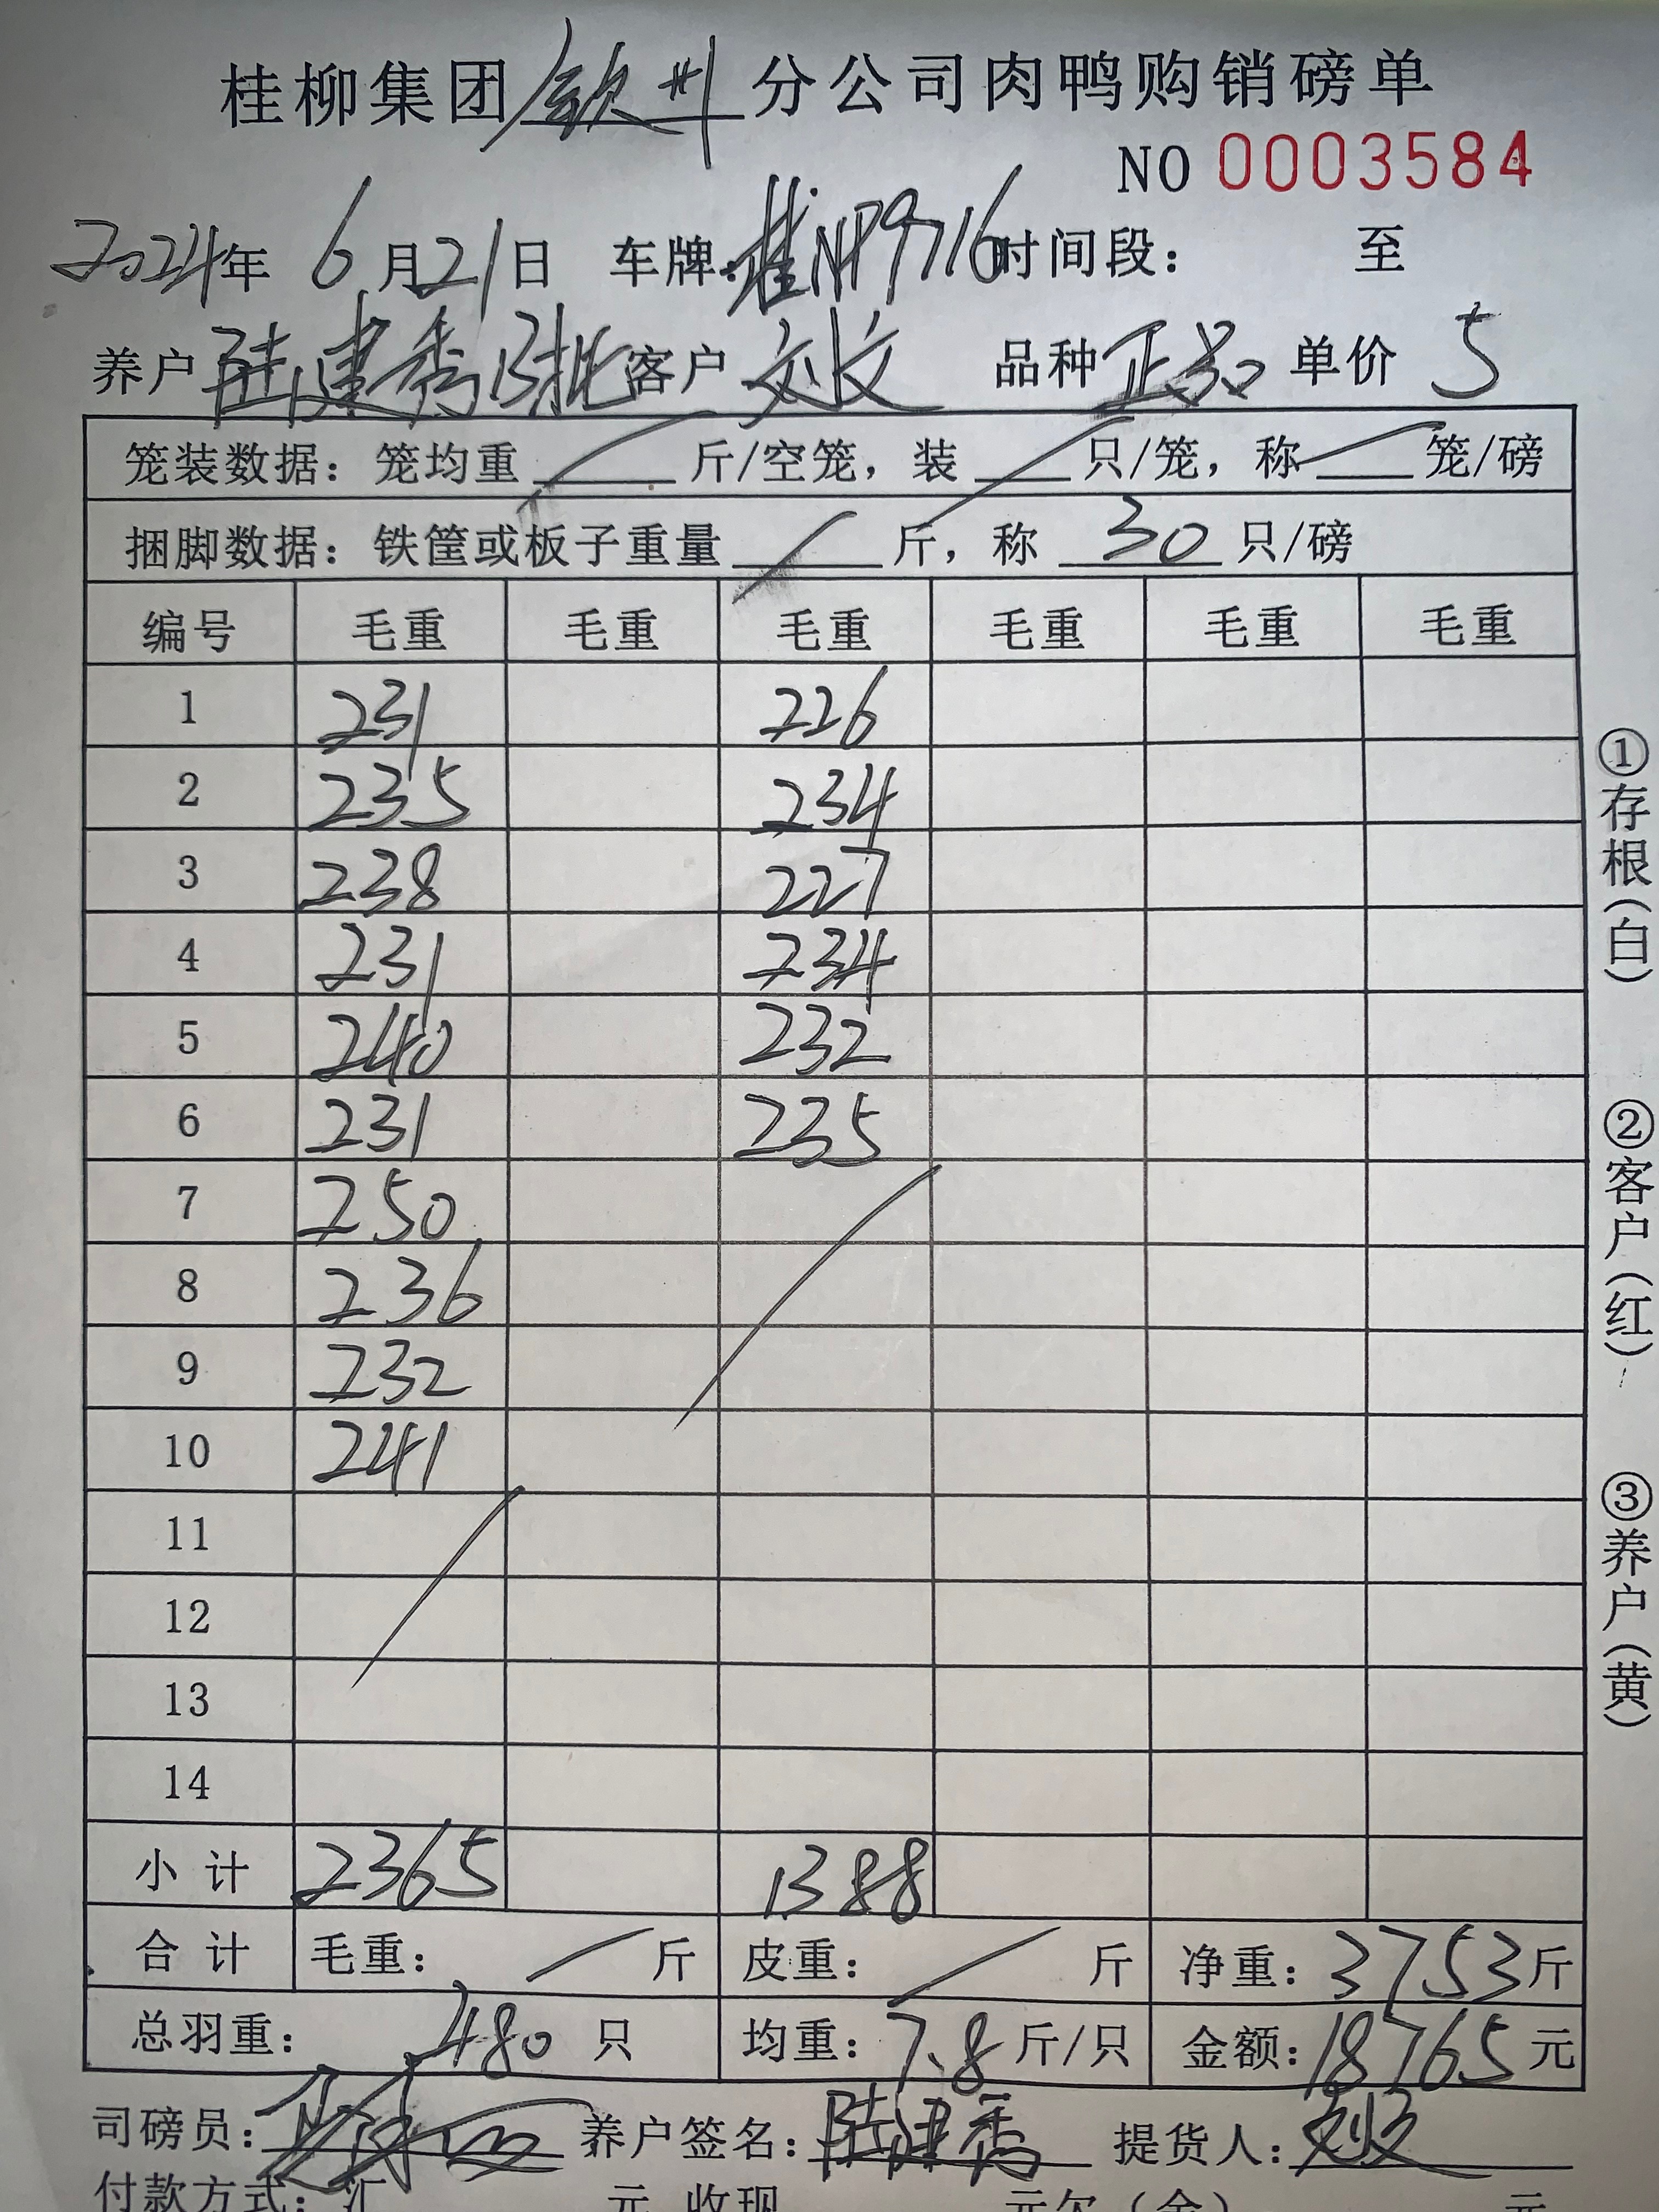 桂柳集团钦州分公司肉鸭购销磅单
NO 0003584
2024年 6月21日 车牌:桂NP9716时间段: 至
养户 陆建秀13批 客户 刘文 品种 正品 单价 5
笼装数据:笼均重 / 斤/空笼,装 / 只/笼,称 / 笼/磅
捆脚数据:铁筐或板子重量 / 斤,称 30 只/磅
编号 毛重 毛重 毛重 毛重 毛重 毛重
1 231 226
2 235 234
3 238 227
4 231 234
5 240 232
6 231 235
7 250
8 236
9 232
10 241
11
12
13
14
小计 2365 1388
合计 毛重: / 斤 皮重: / 斤 净重:3753斤
总羽重: 480 只 均重:7.8斤/只 金额:18765元
司磅员: 养户签名:陆建秀 提货人:刘文
付款方式:汇 元 收现 元欠(余) 元
①存根(白)
②客户(红)
③养户(黄)